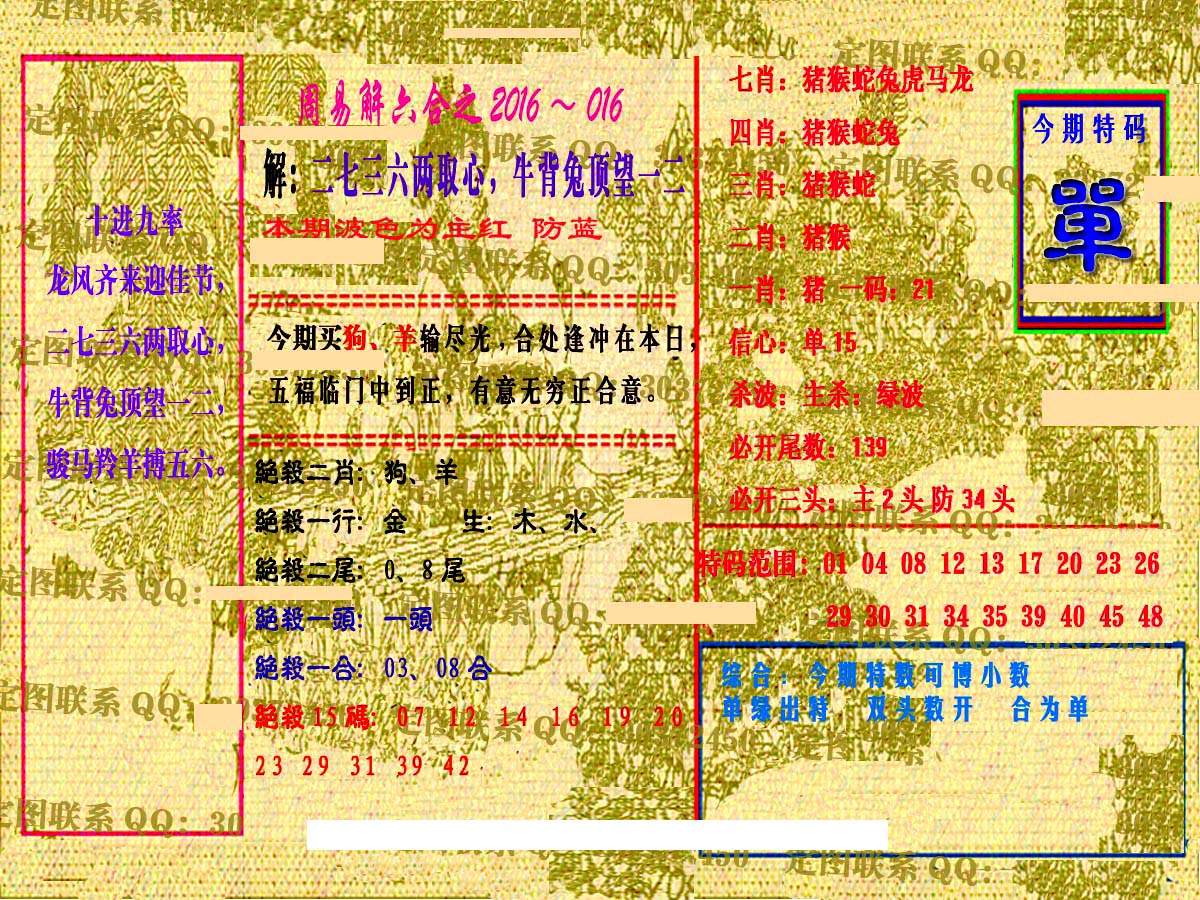 周易解六合之 2016～016
解：二七三六两取心，牛背兔顶望一二
本期波色为主红 防蓝
十进九率
龙风齐来迎佳节，
二七三六两取心，
牛背兔顶望一二，
骏马羚羊搏五六。
今期买狗、羊输尽光，合处逢冲在本日，
五福临门中到正，有意无穷正合意。
絕殺二肖：狗、羊
絕殺一行：金 生：木、水、
絕殺二尾：0、8尾
絕殺一頭：一頭
絕殺一合：03、08合
絕殺15碼：07 12 14 16 19 20
23 29 31 39 42
七肖：猪猴蛇兔虎马龙
四肖：猪猴蛇兔
三肖：猪猴蛇
二肖：猪猴
一肖：猪 一码：21
信心：单15
杀波：主杀：绿波
必开尾数：139
必开三头：主2头防34头
今期特码
單
特码范围：01 04 08 12 13 17 20 23 26
29 30 31 34 35 39 40 45 48
综合：今期特数可博小数
单绿出特 双头数开 合为单
定图联系 QQ：